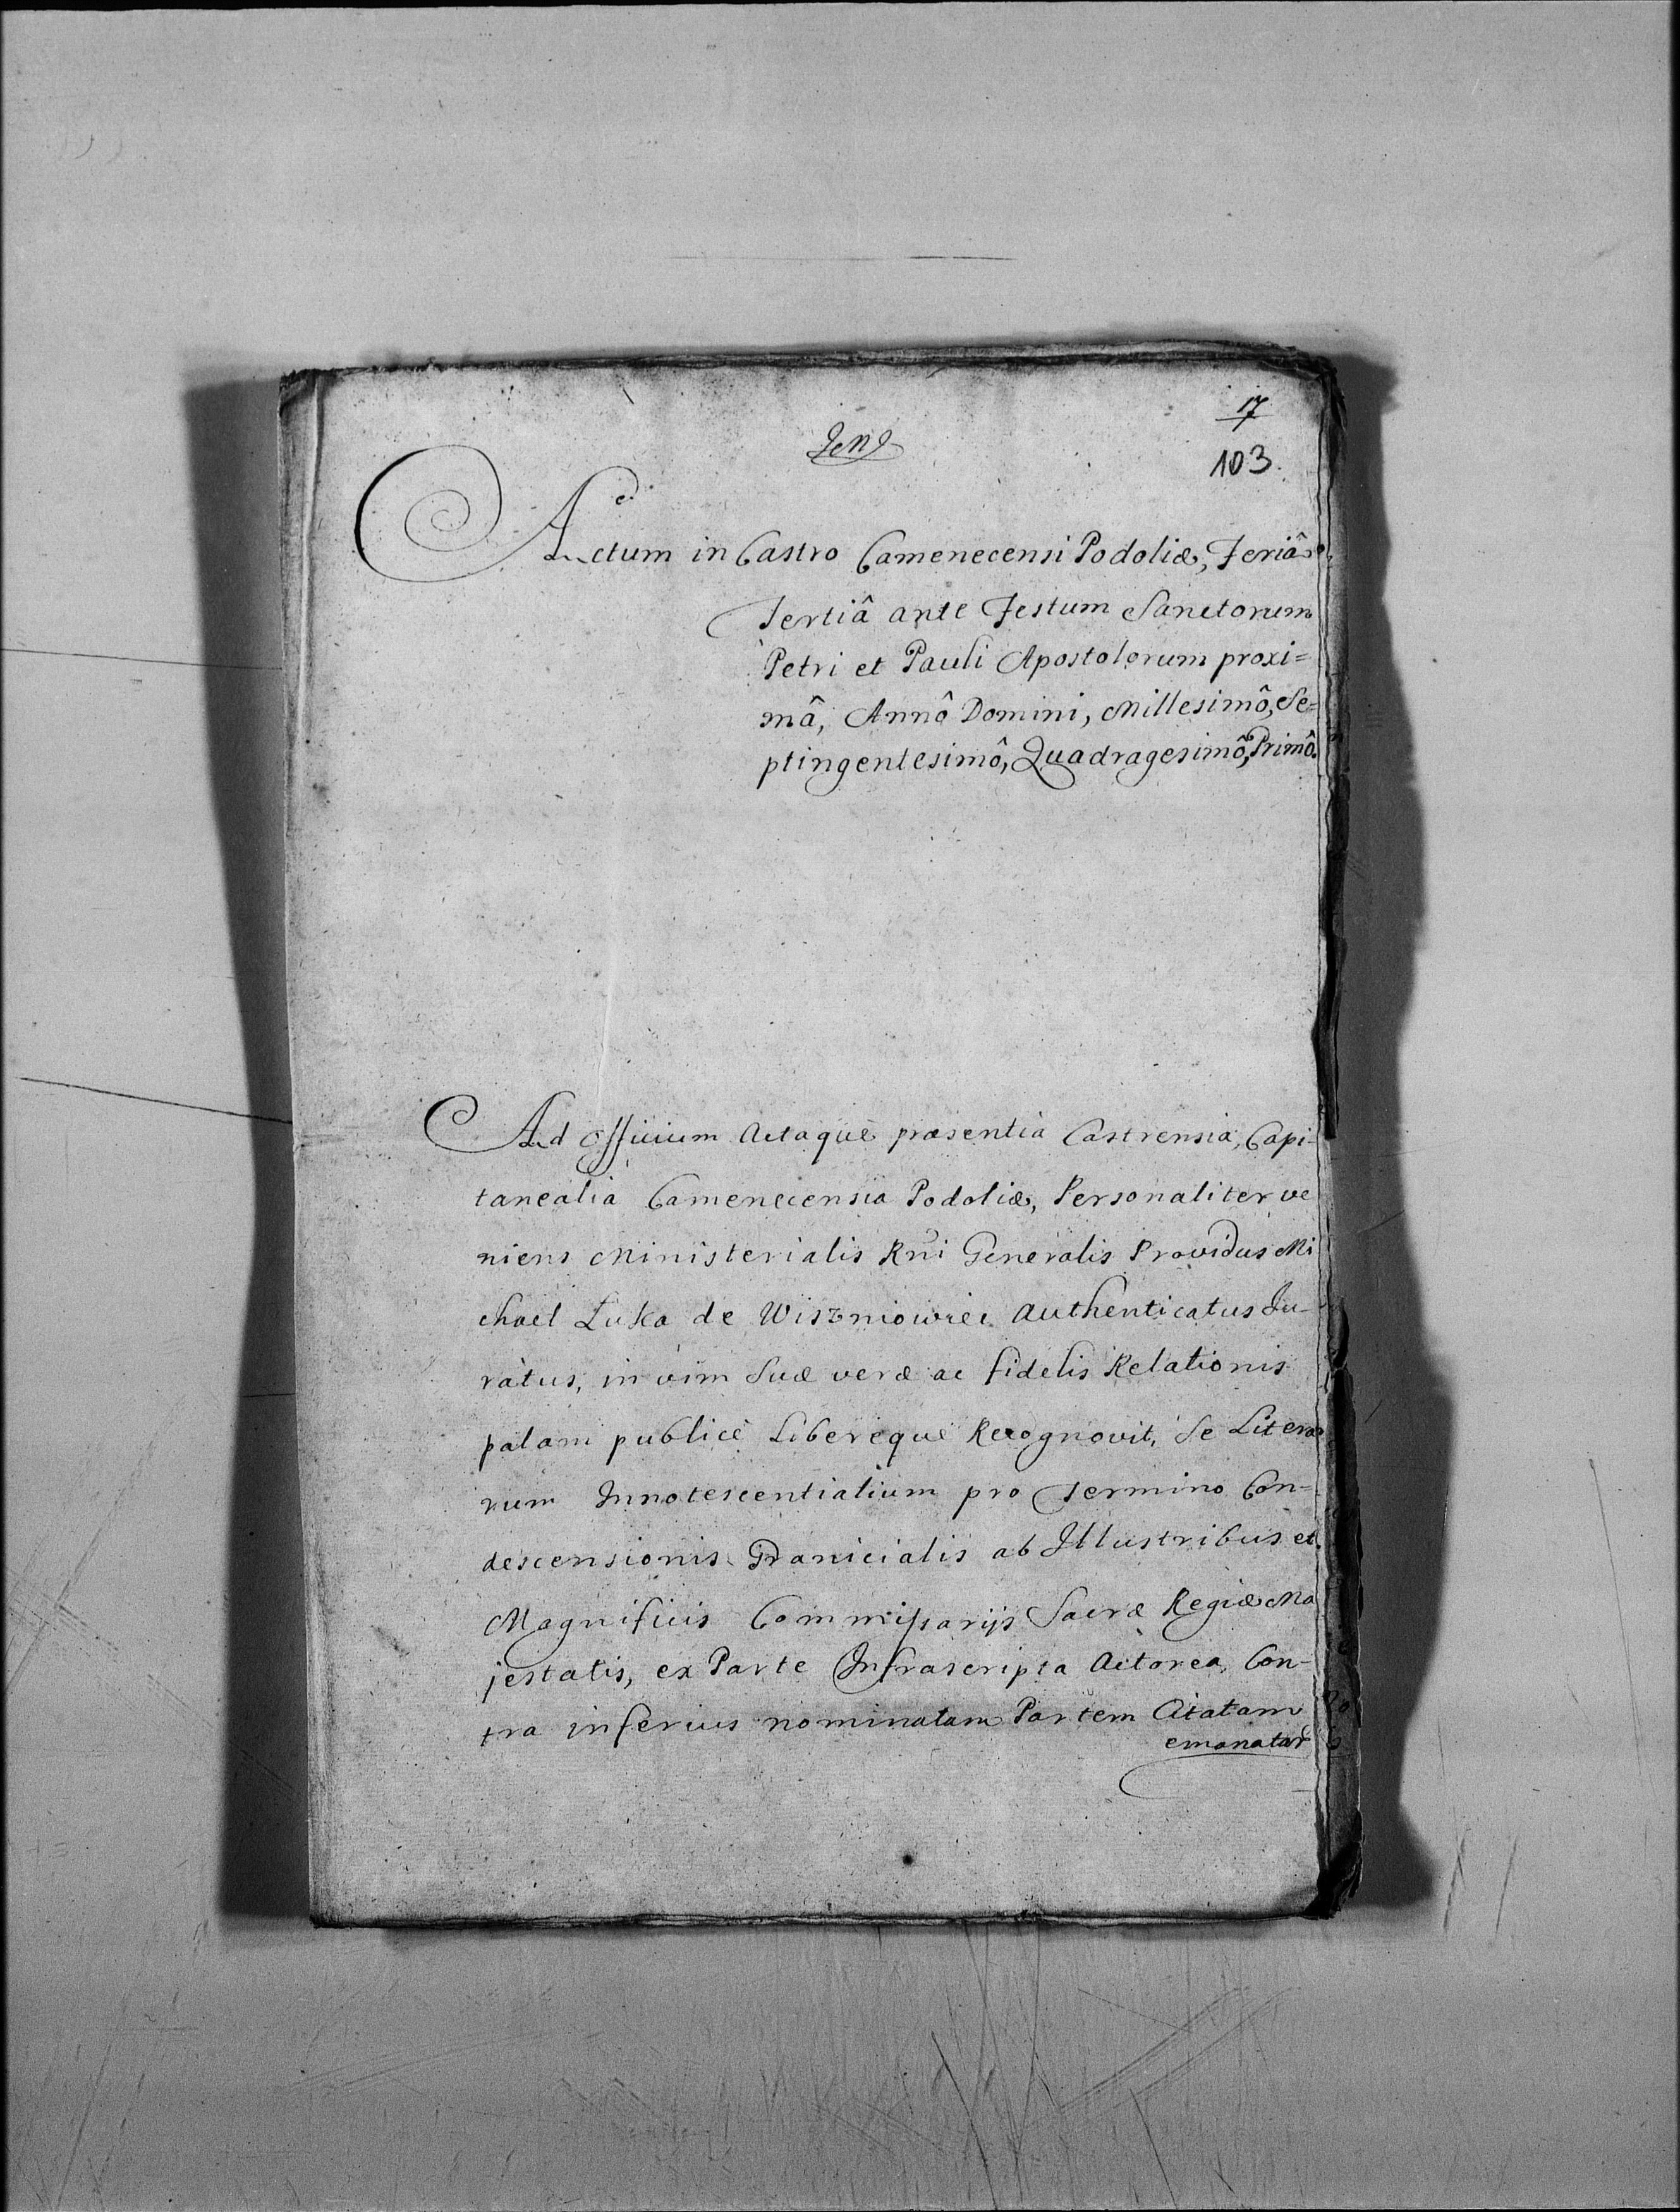 17
103.
Actum in Castro Camenecensi Podoliæ, Feriâ
Tertiâ ante Festum Sanctorum
Petri et Pauli Apostolorum proxi=
mâ, Annô Domini, Millesimô, Se=
ptingentesimô, Quadragesimô, Primô.
Ad Officium Actaque præsentia Castrensia, Capi-
tanealia Camenecensia Podoliæ, Personaliter ve
niens Ministerialis Rñi Generalis Providus Mi
chael Luka de Wiszniowiec Authenticatus Ju-
ratus, in vim Suæ veræ ac fidelis Relationis
palam publicè Liberèque Recognovit, Se Litera
rum Innotescentialium pro Termino Con-
descensionis Granicialis ab Illustribus et
Magnificis Commissarijs Sacræ Regiæ Ma
jestatis, ex Parte Infrascripta Actorea, Con-
tra inferius nominatam Partem Citatam
emanatar